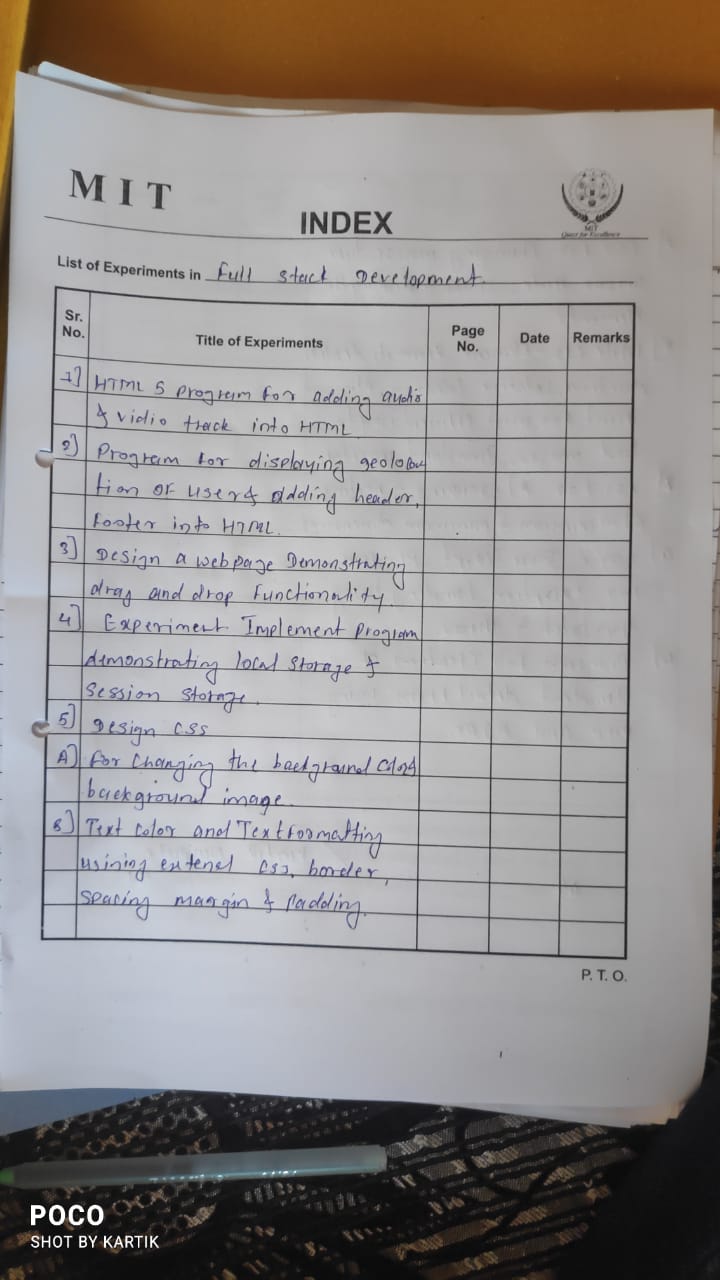 MIT
INDEX
MIT
Quest for Excellence
List of Experiments in Full stack Development.
Sr. No.
Title of Experiments
Page No.
Date
Remarks
1] HTML 5 program for adding audio
& vidio track into HTML.
2] Program for displaying geoloca
tion of user & adding header,
footer into HTML.
3] Design a webpage Demonstrating
drag and drop functionality
4] Experiment Implement program
demonstrating local storage &
Session storage.
5] Design CSS
A] For changing the background color
background image.
B] Text color and Text formatting
usining extenel css, border,
Spacing margin & Padding.
P. T. O.
POCO
SHOT BY KARTIK